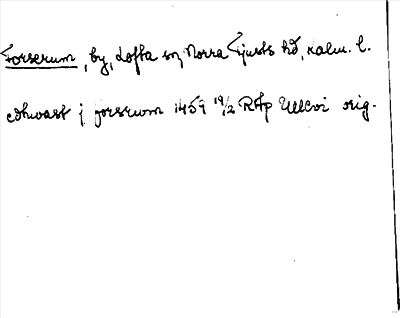 Forserum, by, Lofta sn, Norra Tjusts hd, Kalm. l.
edhuast j forserum 1459 19/2 RAp Ullevi orig.